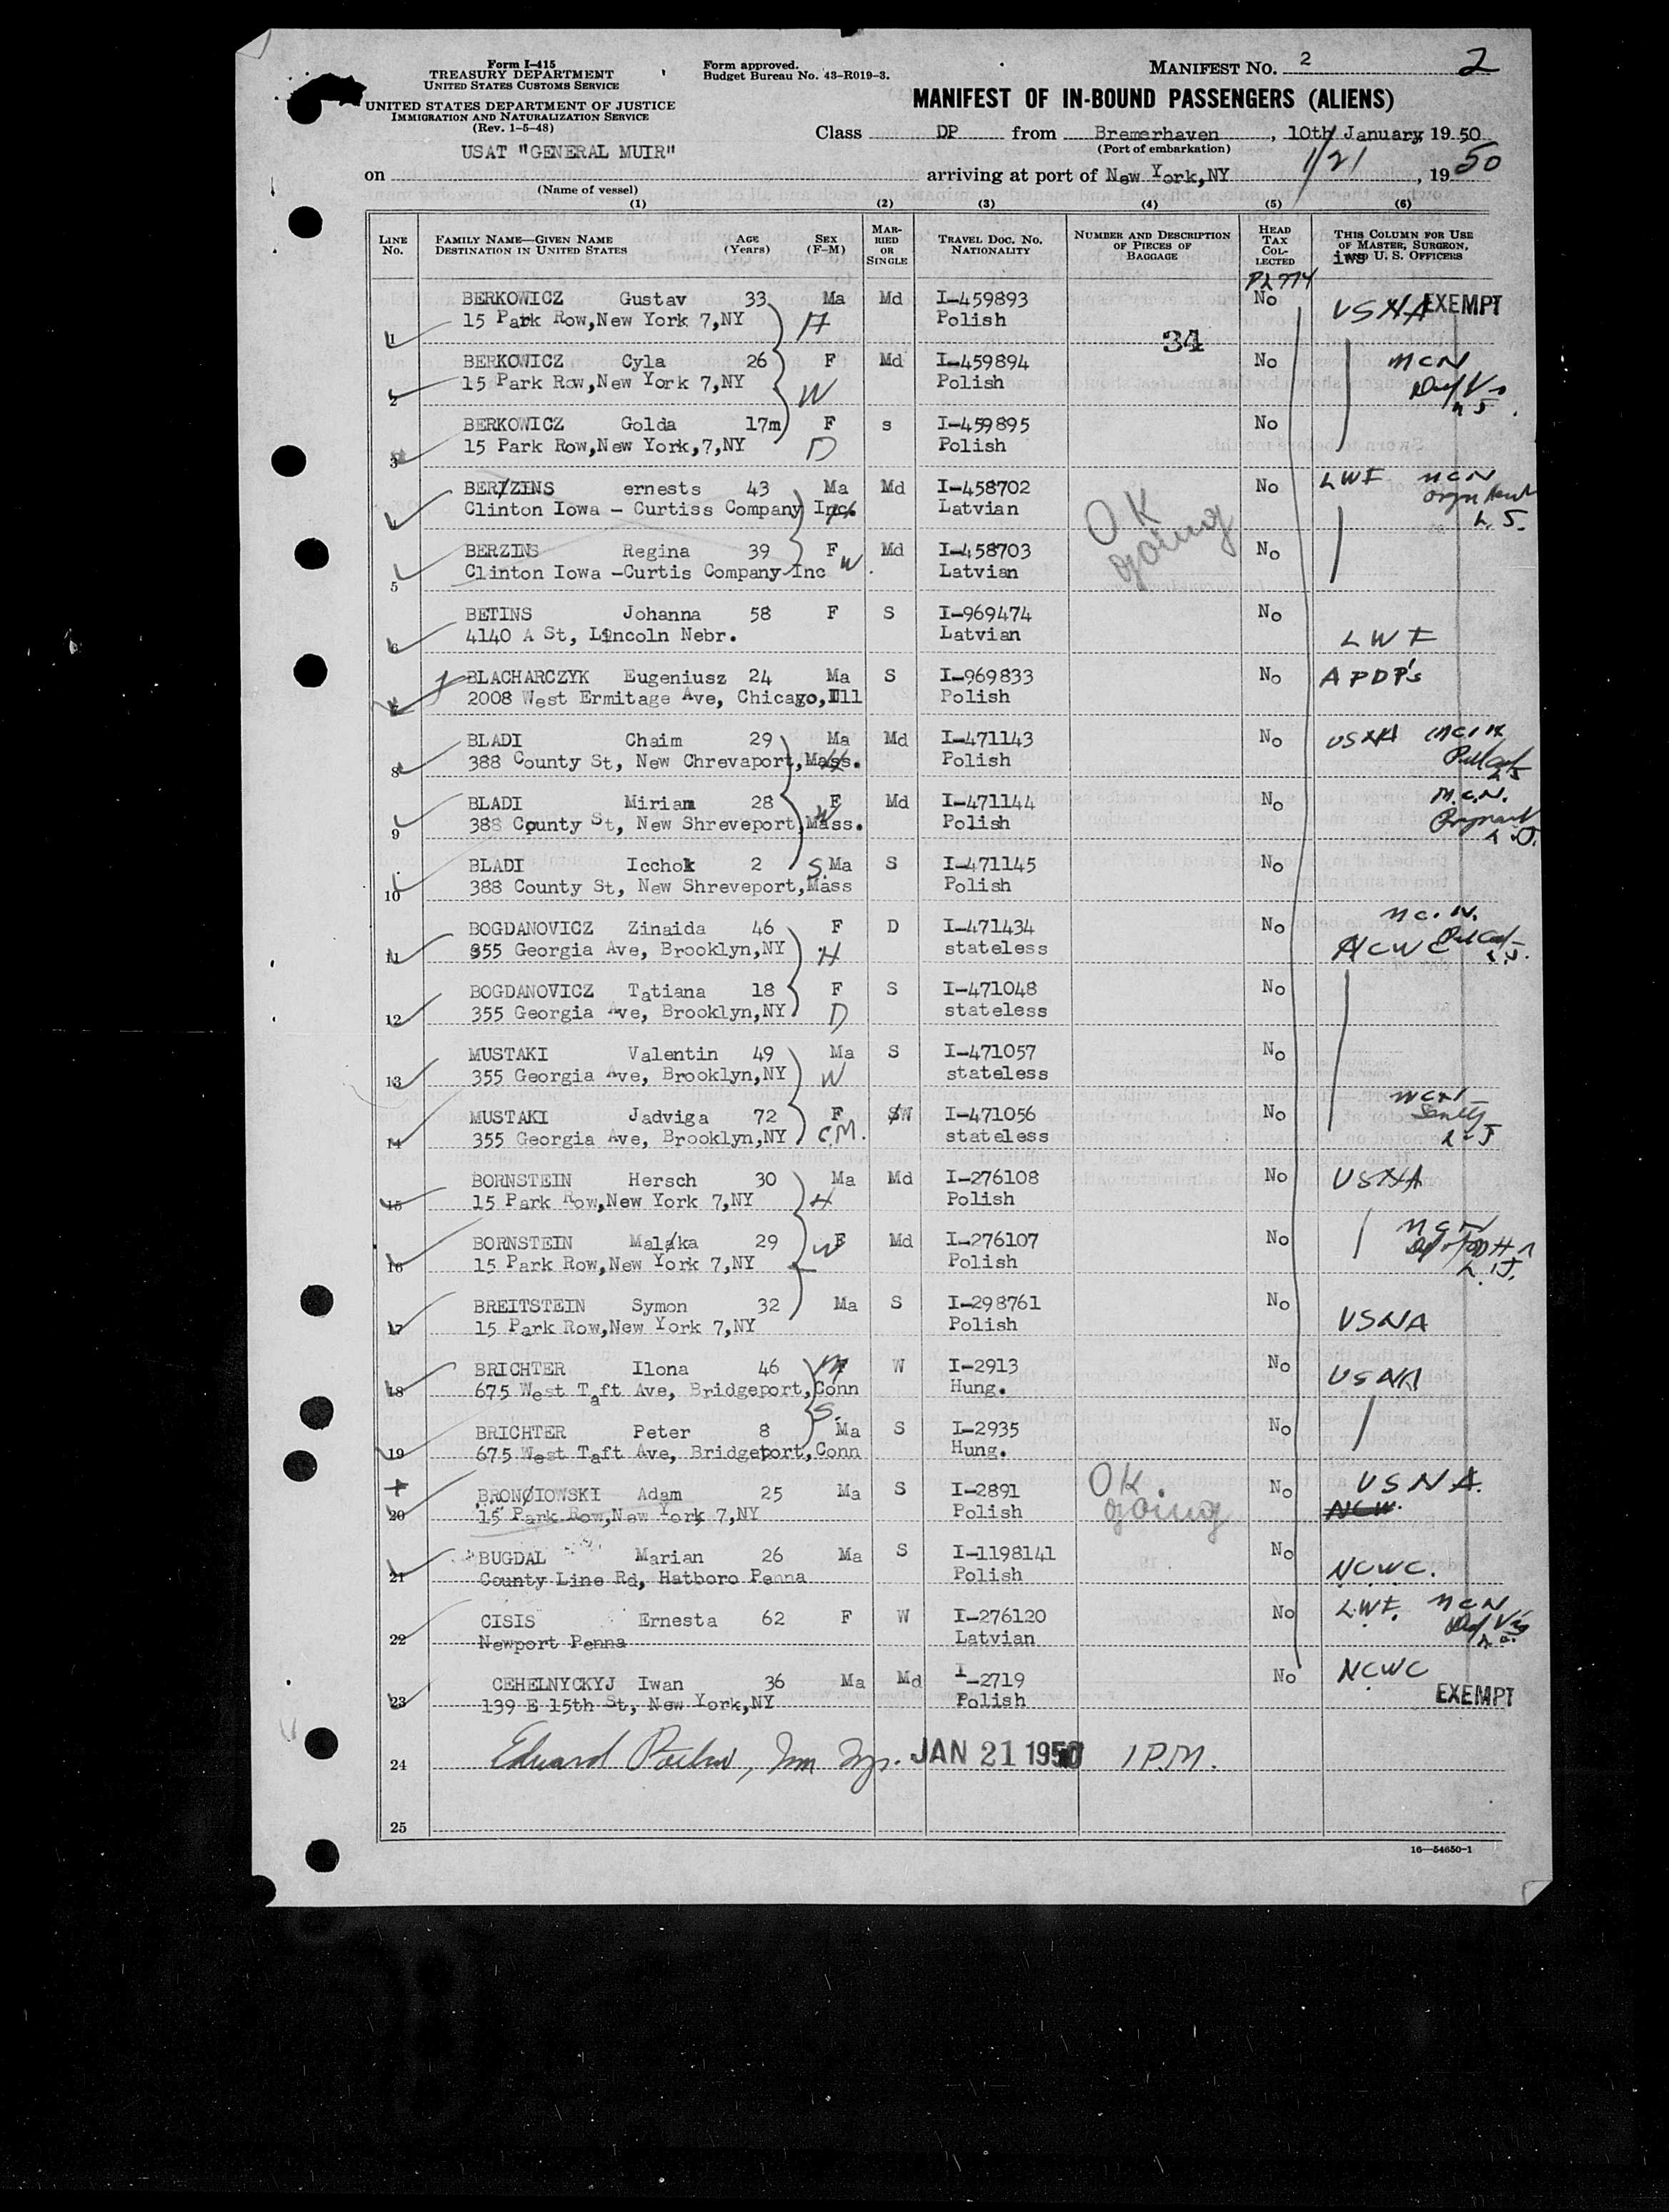 Form I-415
TREASURY DEPARTMENT
UNITED STATES CUSTOMS SERVICE
UNITED STATES DEPARTMENT OF JUSTICE
IMMIGRATION AND NATURALIZATION SERVICE
(Rev. 1-5-48)
Form approved.
Budget Bureau No. 43-R019-3.
MANIFEST NO. 2
2
MANIFEST OF IN-BOUND PASSENGERS (ALIENS)
Class DP from Bremerhaven, 10th January, 19 50
(Port of embarkation)
USAT "GENERAL MUIR"
on arriving at port of New York,NY 1/21, 19 50
(Name of vessel)
(1) (2) (3) (4) (5) (6)
LINE No. FAMILY NAME—GIVEN NAME DESTINATION IN UNITED STATES AGE (YEARS) SEX (F-M) MARRIED OR SINGLE TRAVEL DOC. NO. NATIONALITY NUMBER AND DESCRIPTION OF PIECES OF BAGGAGE HEAD TAX COLLECTED THIS COLUMN FOR USE OF MASTER, SURGEON, AND U. S. OFFICERS
iws
PL 774
BERKOWICZ Gustav 33 Ma Md I-459893 No USNA EXEMPT
1 15 Park Row,New York 7,NY H Polish
34
BERKOWICZ Cyla 26 F Md I-459894 No MCN
2 15 Park Row,New York 7,NY W Polish
BERKOWICZ Golda 17m F s I-459895 No
3 15 Park Row,New York,7,NY D Polish
BERZINS ernests 43 Ma Md I-458702 No LWF MCN
4 Clinton Iowa - Curtiss Company Inc. Latvian
OK going
BERZINS Regina 39 F Md I-458703 No
5 Clinton Iowa -Curtis Company Inc W. Latvian
BETINS Johanna 58 F S I-969474 No
6 4140 A St, Lincoln Nebr. Latvian LWF
BLACHARCZYK Eugeniusz 24 Ma S I-969833 No APDP's
2008 West Ermitage Ave, Chicago,Ill Polish
BLADI Chaim 29 Ma Md I-471143 No USNA
8 388 County St, New Chrevaport,Mass. Polish
BLADI Miriam 28 F Md I-471144 No M.C.N.
9 388 County St, New Shreveport,Mass. W Polish
BLADI Icchok 2 S. Ma S I-471145 No
10 388 County St, New Shreveport,Mass Polish
BOGDANOVICZ Zinaida 46 F D I-471434 No MC.N.
11 355 Georgia Ave, Brooklyn,NY H stateless
BOGDANOVICZ Tatiana 18 F S I-471048 No
12 355 Georgia Ave, Brooklyn,NY D stateless
MUSTAKI Valentin 49 Ma S I-471057 No
13 355 Georgia Ave, Brooklyn,NY W stateless
MUSTAKI Jadviga 72 F SW I-471056 No MCN
14 355 Georgia Ave, Brooklyn,NY C.M. stateless
BORNSTEIN Hersch 30 Ma Md I-276108 No USNA
15 15 Park Row,New York 7,NY H Polish
BORNSTEIN Malaka 29 F Md I-276107 No MCN
16 15 Park Row,New York 7,NY W Polish
BREITSTEIN Symon 32 Ma S I-298761 No
17 15 Park Row,New York 7,NY Polish USNA
BRICHTER Ilona 46 W I-2913 No USNA
18 675 West Taft Ave, Bridgeport,Conn Hung.
BRICHTER Peter 8 S. Ma S I-2935 No
19 675 West Taft Ave, Bridgeport,Conn Hung.
BRONOIOWSKI Adam 25 Ma S I-2891 OK going No USNA.
20 15 Park Row,New York 7,NY Polish NCW.
BUGDAL Marian 26 Ma S I-1198141 No
21 County Line Rd, Hatboro Penna Polish NCWC.
CISIS Ernesta 62 F W I-276120 No L.W.F. MCN
22 Newport Penna Latvian
CEHELNYCKYJ Iwan 36 Ma Md I-2719 No NCWC
23 139 E 15th St, New York,NY Polish EXEMPT
24 Edward JAN 21 1950 1 P.M.
25
16—54650-1